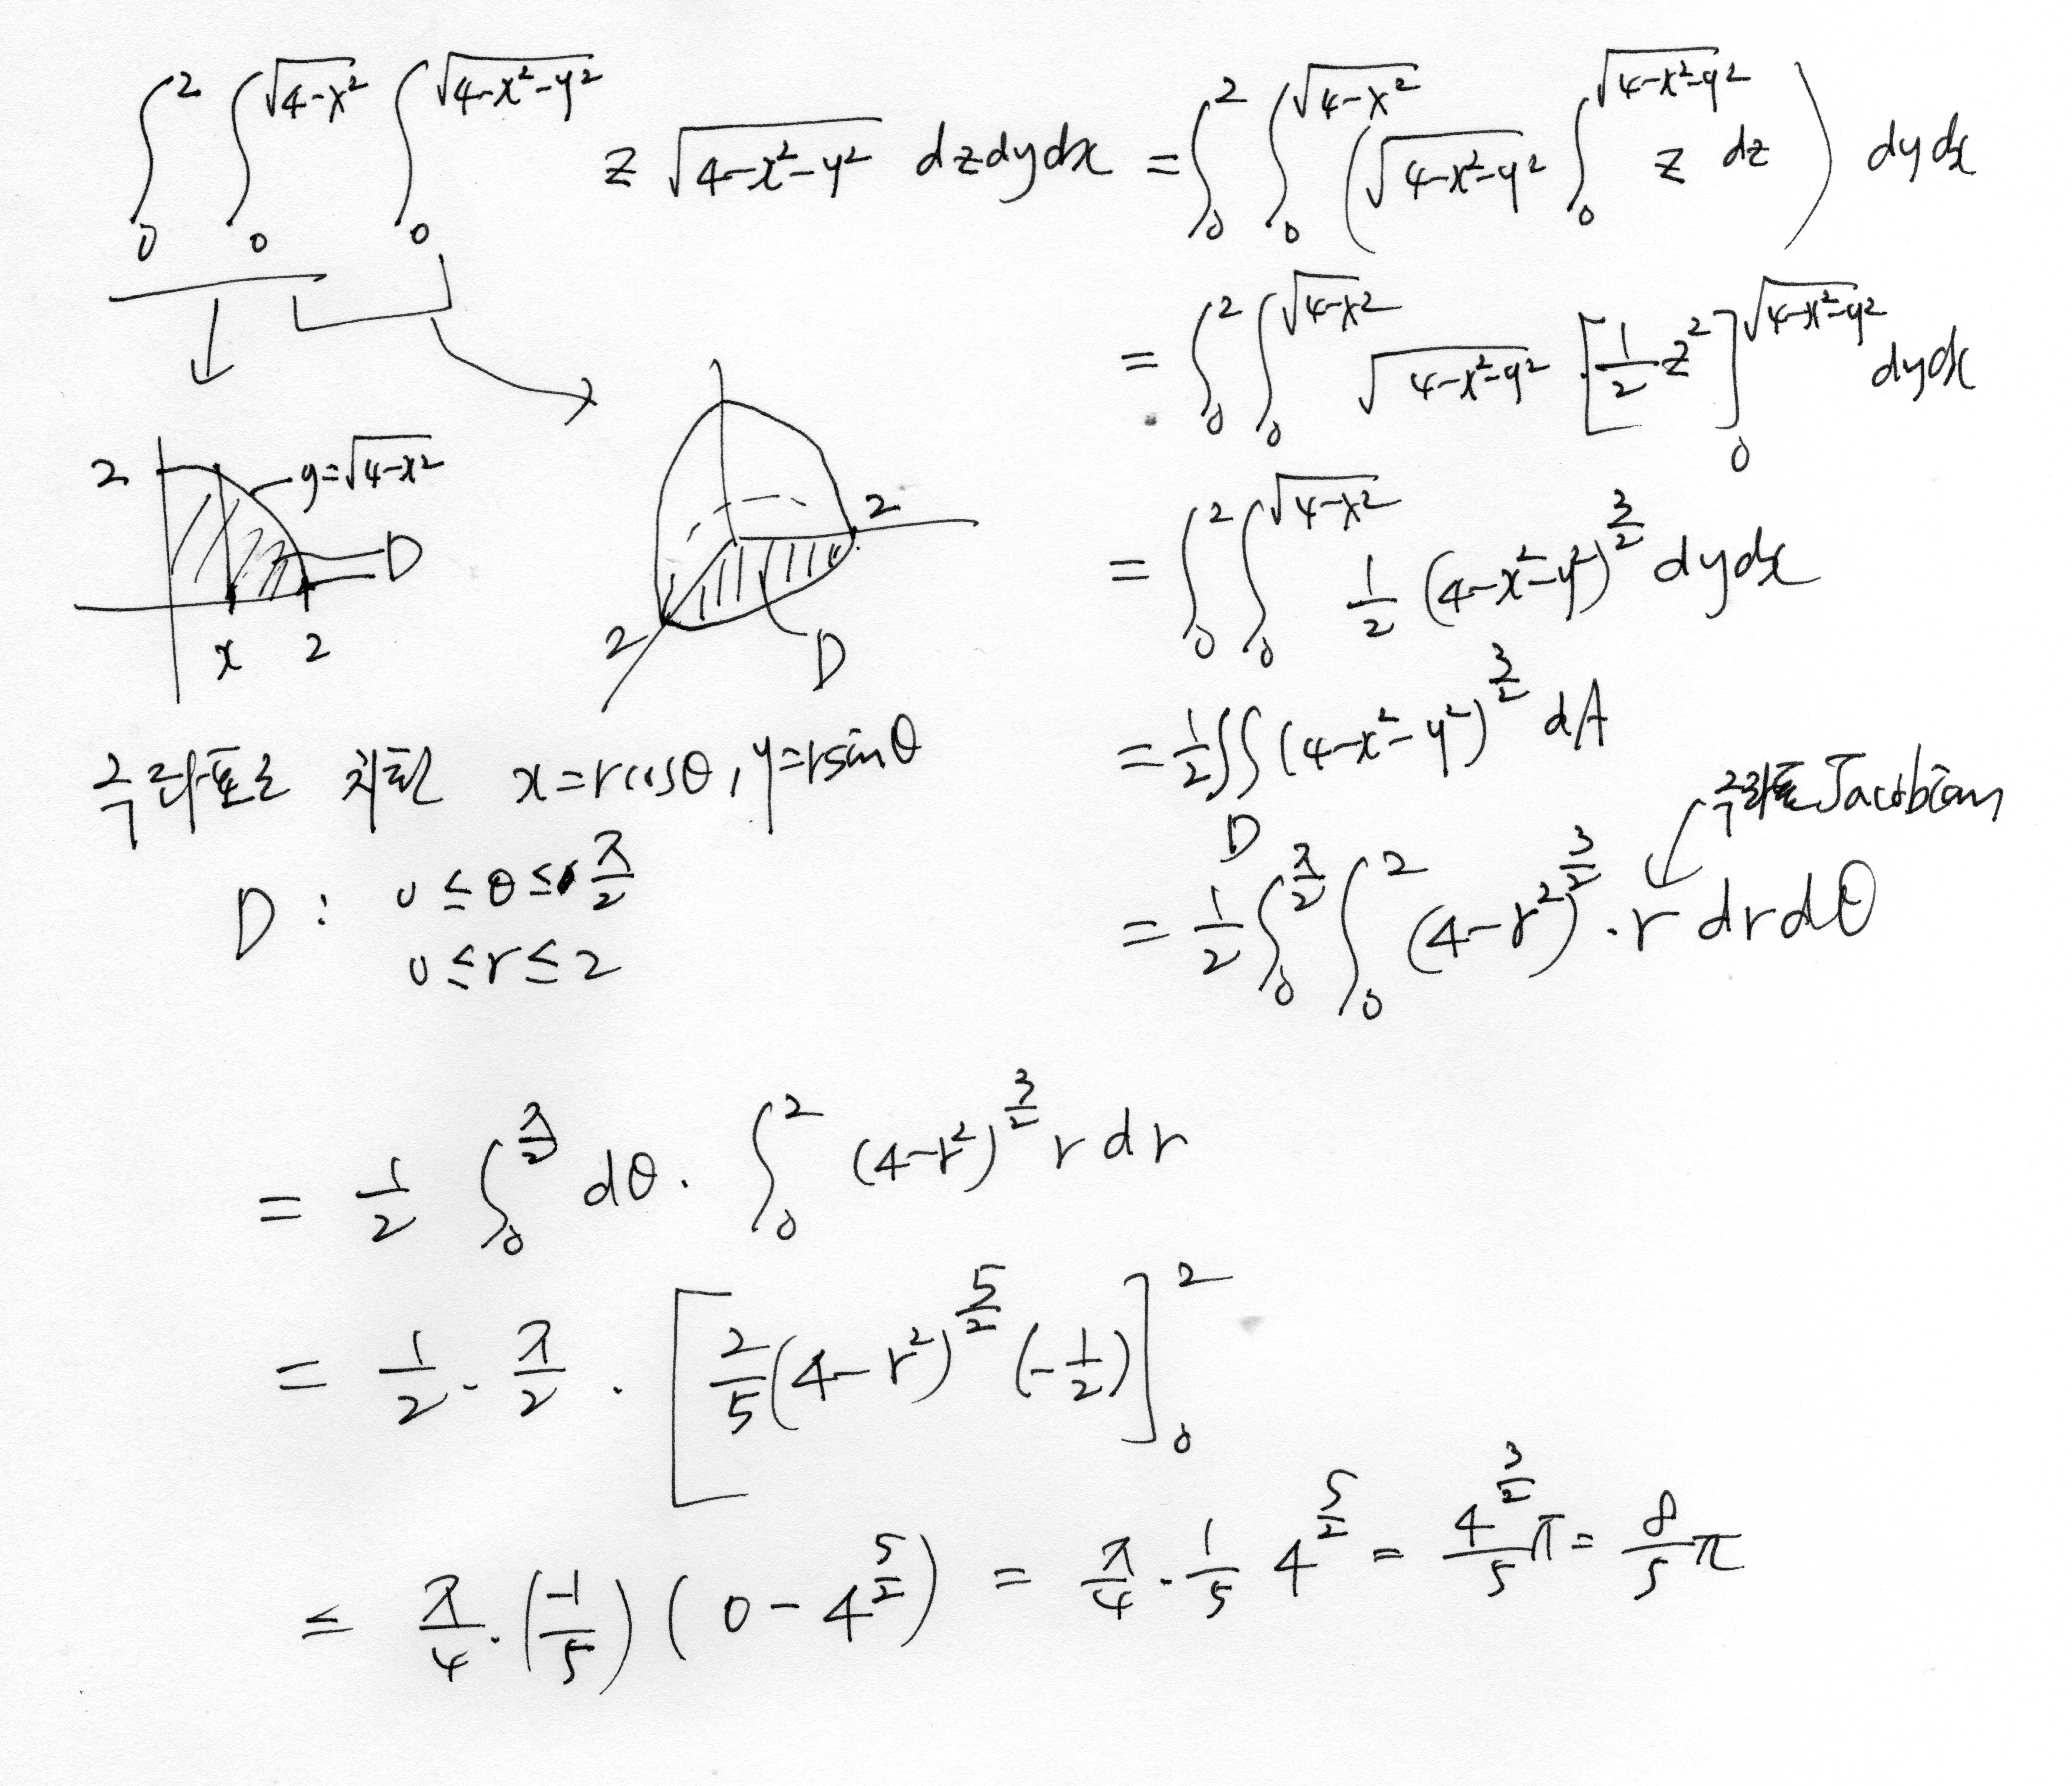 ∫₀² ∫₀^√(4-x²) ∫₀^√(4-x²-y²) z √(4-x²-y²) dzdydx = ∫₀² ∫₀^√(4-x²) ( √(4-x²-y²) ∫₀^√(4-x²-y²) z dz ) dydx
= ∫₀² ∫₀^√(4-x²) √(4-x²-y²) · [1/2 z²]₀^√(4-x²-y²) dydx
2 y=√(4-x²) D x 2
2 2 D
= ∫₀² ∫₀^√(4-x²) 1/2 (4-x²-y²)^(3/2) dydx
= 1/2 ∫∫_D (4-x²-y²)^(3/2) dA
극좌표로 치환 x=rcosθ, y=rsinθ
D : 0≤θ≤π/2
0≤r≤2
극좌표 Jacobian
= 1/2 ∫₀^(π/2) ∫₀² (4-r²)^(3/2) · r drdθ
= 1/2 ∫₀^(π/2) dθ · ∫₀² (4-r²)^(3/2) r dr
= 1/2 · π/2 · [2/5 (4-r²)^(5/2) (-1/2)]₀²
= π/4 · (-1/5) (0 - 4^(5/2)) = π/4 · 1/5 4^(5/2) = 4^(3/2)/5 π = 8/5 π